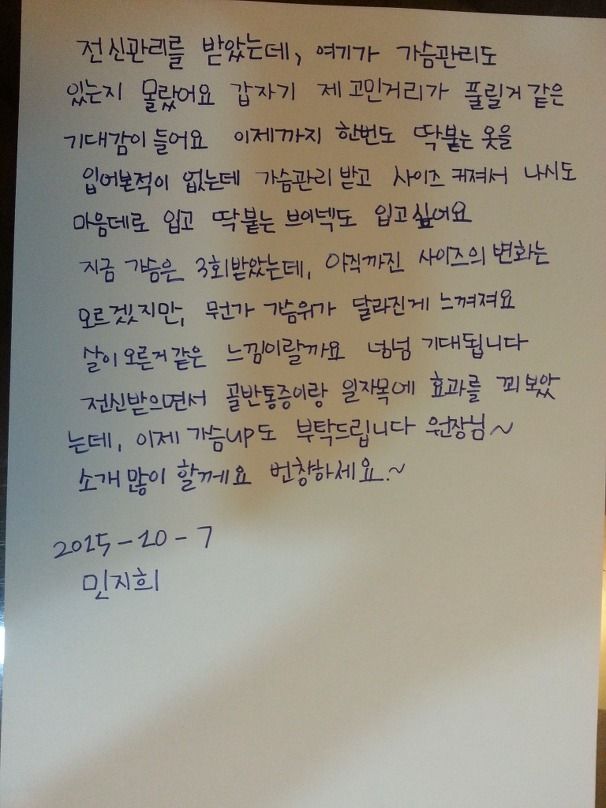 전신관리를 받았는데, 여기가 가슴관리도
있는지 몰랐어요 갑자기 제 고민거리가 풀릴거 같은
기대감이 들어요 이제까지 한번도 딱붙는 옷을
입어본적이 없는데 가슴관리 받고 사이즈 커져서 나시도
마음데로 입고 딱붙는 브이넥도 입고싶어요
지금 가슴은 3회받았는데, 아직까진 사이즈의 변화는
모르겠지만, 뭔가 가슴위가 달라진게 느껴져요
살이 오른거같은 느낌이랄까요 넘넘 기대됩니다
전신받으면서 골반통증이랑 일자목에 효과를 꾀 보았
는데, 이제 가슴up도 부탁드립니다 원장님~
소개 많이 할께요 번창하세요.~
2015-10-7
민지희